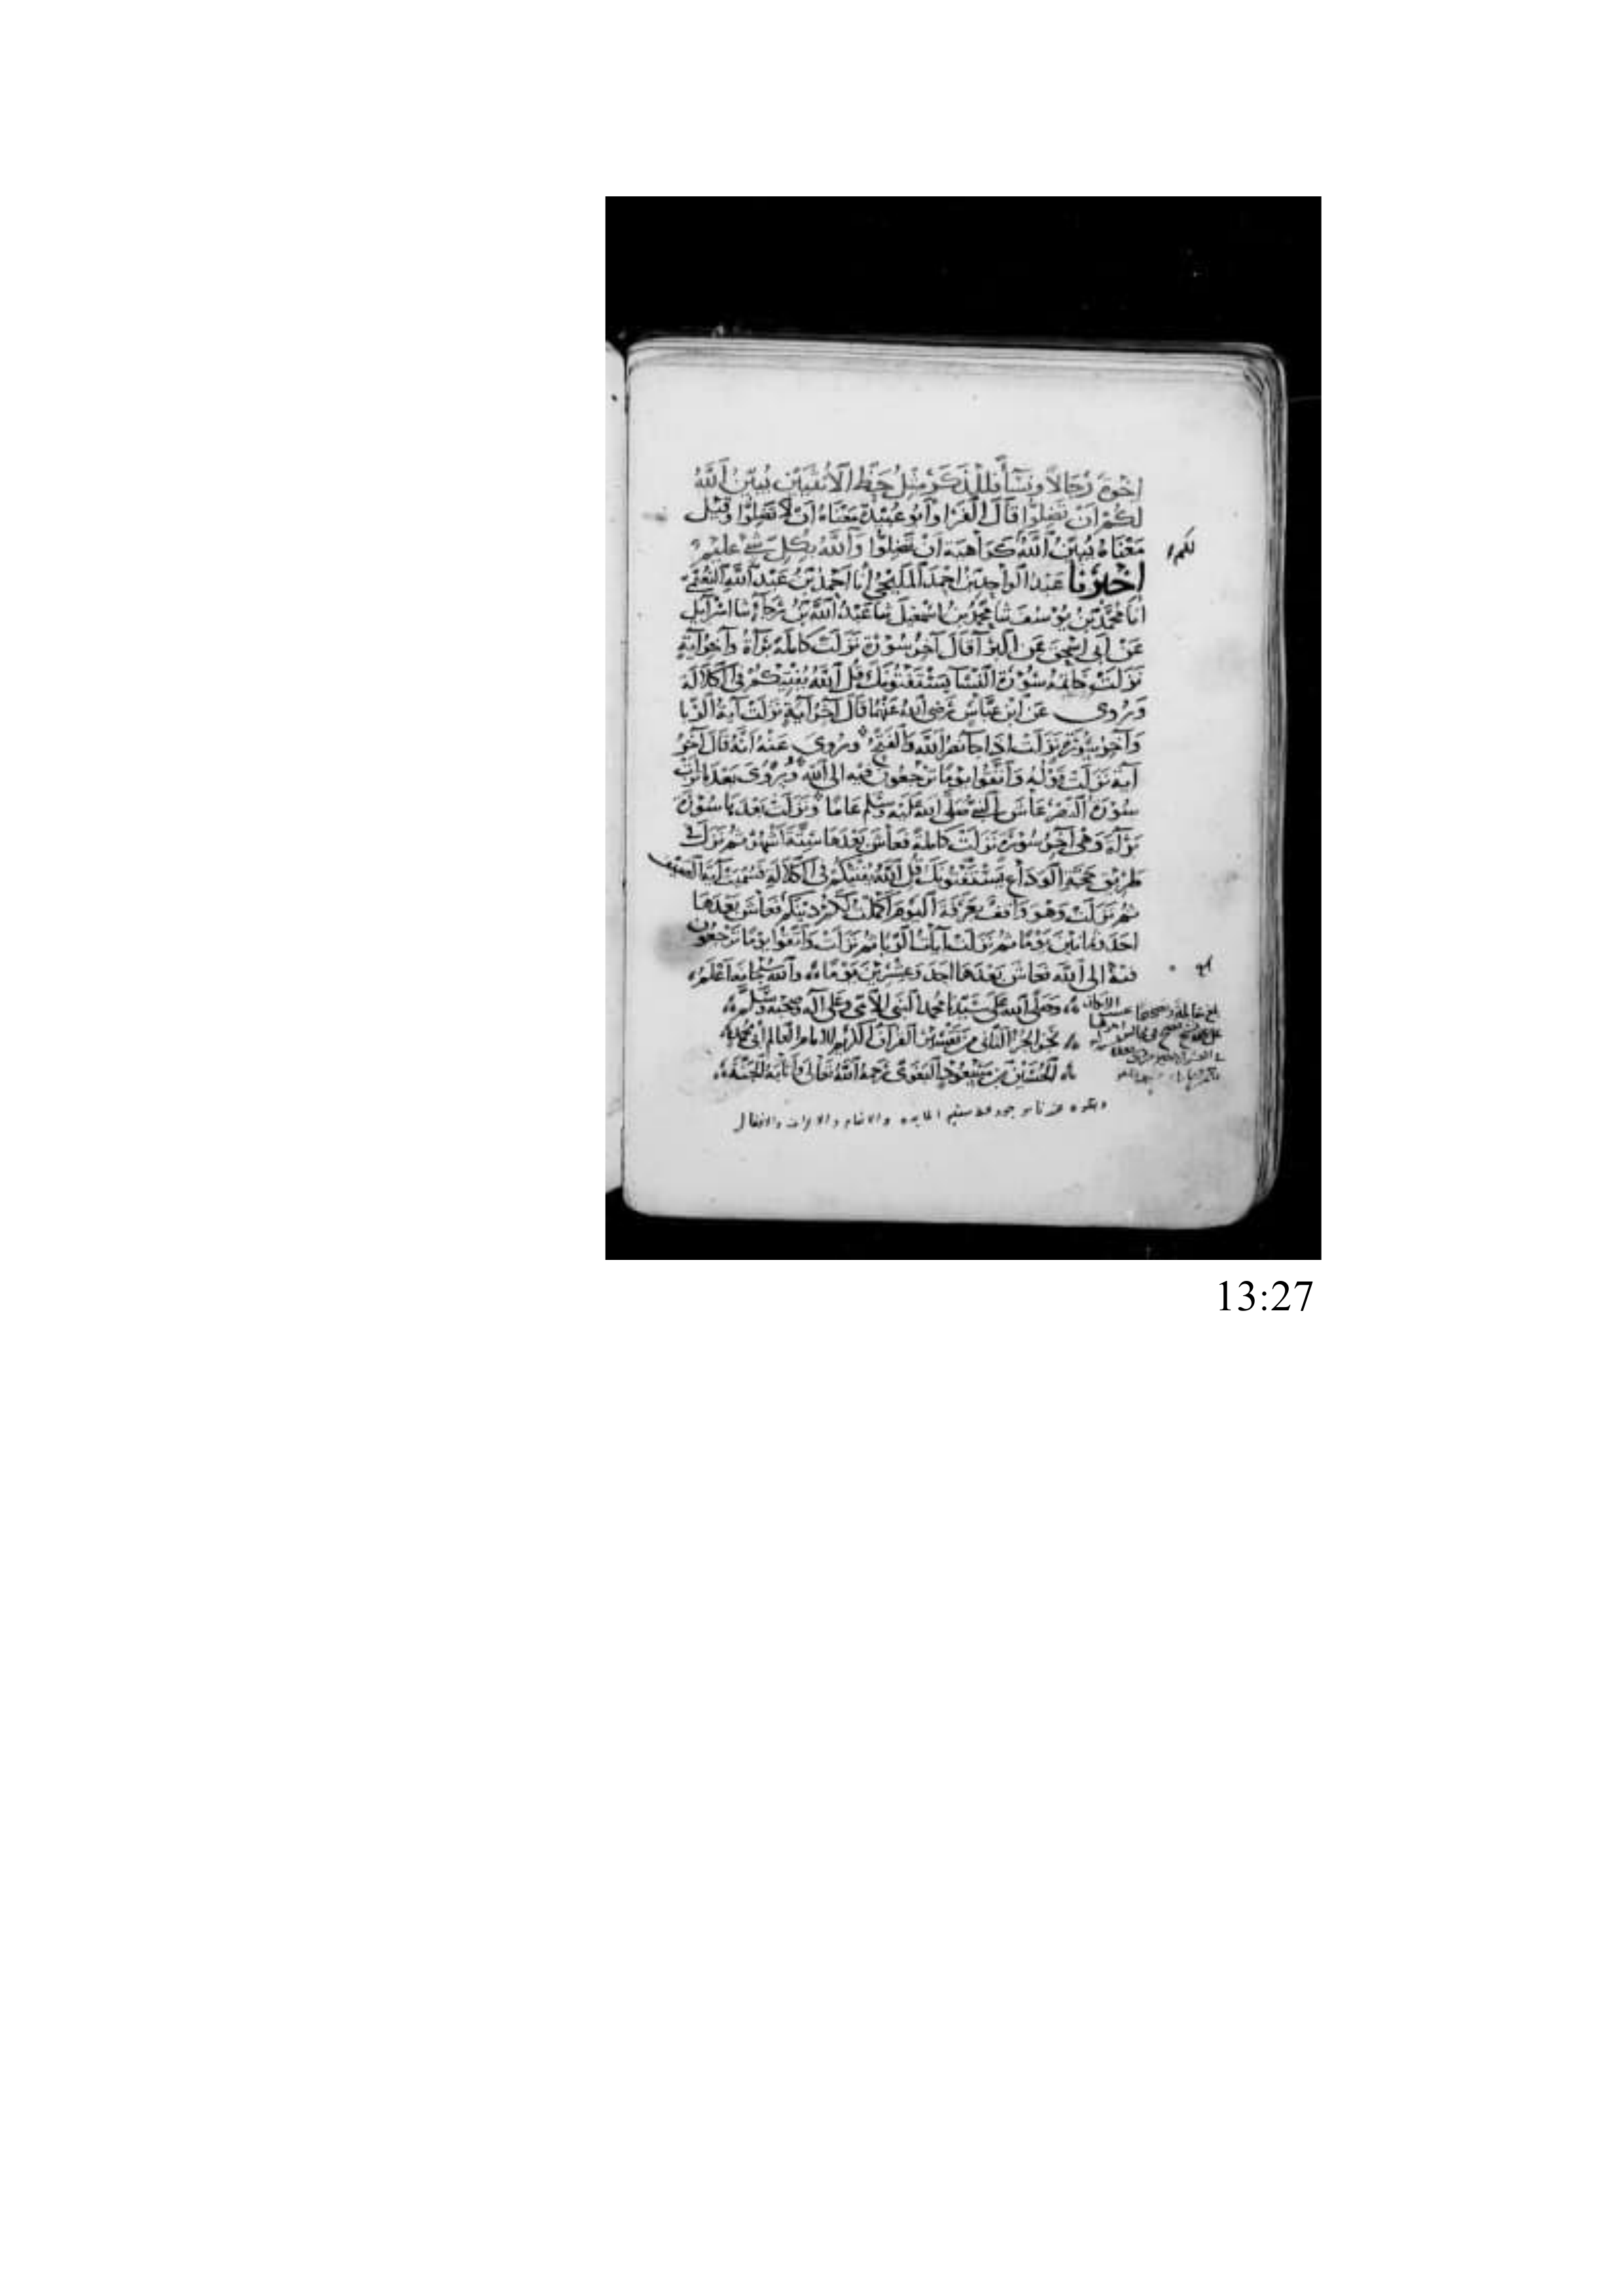 اِخْوَةً رِجَالاً ونِسَآءً فَلِلذَّكَرِ مِثْلُ حَظِّ الاُنْثَيَيْنِ يُبَيِّنُ اَللَّهُ
لَكُمْ اَنْ تَضِلُّوا قَالَ الْفَرَّا وَاَبُو عُبَيْدَةَ مَعْنَاهُ اَنْ لاَ تَضِلُّوا وَقِيْلَ
مَعْنَاهُ يُبَيِّنُ اَللَّهُ كَرَاهِيَةَ اَنْ تَضِلُّوا وَاَللَّهُ بِكُلِّ شَيْءٍ عَلِيْمٌ
لكم
اخبرنا عَبْدُ الْوَاحِدِ بْنُ اَحْمَدَ الْمَلِيْحِيُّ اَنَا اَحْمَدُ بْنُ عَبْدِ اللَّهِ النُّعَيْمِيُّ
اَنَا مُحَمَّدُ بْنُ يُوْسُفَ ثنا مُحَمَّدُ بْنُ اسْمٰعِيْلَ ثنا عَبْدُ اللَّهِ بْنُ رَجَآءٍ ثنا اسْرَآئِيْلُ
عَنْ اَبِي اِسْحٰقَ عَنِ الْبَرَآ قَالَ آخِرُ سُوْرَةٍ نَزَلَتْ كَامِلَةً بَرَآةُ وَآخِرُ آيَةٍ
نَزَلَتْ خَاتِمَةُ سُوْرَةِ النِّسَا يَسْتَفْتُوْنَكَ قُلِ اللَّهُ يُفْتِيْكُمْ فِي الْكَلاَلَةِ
وَرُوِيَ عَنِ ابْنِ عَبَّاسٍ رَضِيَ اللَّهُ عَنْهُمَا قَالَ آخِرُ آيَةٍ نَزَلَتْ آيَةُ الرِّبَا
وَآخِرُ سُوْرَةٍ نَزَلَتْ اِذَا جَآءَ نَصْرُ اللَّهِ وَالْفَتْحُ وَرُوِيَ عَنْهُ اَنَّهُ قَالَ آخِرُ
آيَةٍ نَزَلَتْ قَوْلُهُ وَاتَّقُوا يَوْمًا تُرْجَعُوْنَ فِيْهِ اِلَى اللَّهِ وَيُرْوَى بَعْدَ مَا نَزَلَتْ
سُوْرَةُ النَّصْرِ عَاشَ النَّبِيُّ صَلَّى اللَّهُ عَلَيْهِ وَسَلَّمَ عَامًا وَنَزَلَتْ بَعْدَهَا سُوْرَةُ
بَرَآةَ وَهِيَ آخِرُ سُوْرَةٍ نَزَلَتْ كَامِلَةً فَعَاشَ بَعْدَهَا سِتَّةَ اَشْهُرٍ ثُمَّ نَزَلَتْ فِي
طَرِيْقِ حَجَّةِ الْوَدَاعِ يَسْتَفْتُوْنَكَ قُلِ اللَّهُ يُفْتِيْكُمْ فِي الْكَلاَلَةِ فَسُمِّيَتْ آيَةَ الصَّيْفِ
ثُمَّ نَزَلَتْ وَهُوَ وَاقِفٌ بِعَرَفَةَ اَلْيَوْمَ اَكْمَلْتُ لَكُمْ دِيْنَكُمْ فَعَاشَ بَعْدَهَا
اَحَدَ وَثَمَانِيْنَ يَوْمًا ثُمَّ نَزَلَتْ آيَاتُ الرِّبَا ثُمَّ نَزَلَتْ وَاتَّقُوا يَوْمًا تُرْجَعُوْنَ
فِيْهِ اِلَى اللَّهِ فَعَاشَ بَعْدَهَا اَحَدَ وَعِشْرِيْنَ يَوْمًا وَاللَّهُ سُبْحَانَهُ اَعْلَمُ
وَصَلَّى اللَّهُ عَلَى سَيِّدِنَا مُحَمَّدٍ النَّبِيِّ الأُمِّيِّ وَعَلَى آلِهِ وَصَحْبِهِ وَسَلَّمَ
نَجَزَ الْجُزْءُ الثَّانِي مِنْ تَفْسِيْرِ الْقُرْآنِ الْكَرِيْمِ لِلْاِمَامِ الْعَالِمِ اَبِي مُحَمَّدٍ
الْحُسَيْنِ بْنِ مَسْعُوْدٍ الْبَغَوِيِّ رَحِمَهُ اللَّهُ تَعَالَى وَاَثَابَهُ الْجَنَّةَ
المايده والانعام والاعراف والانفال
13:27